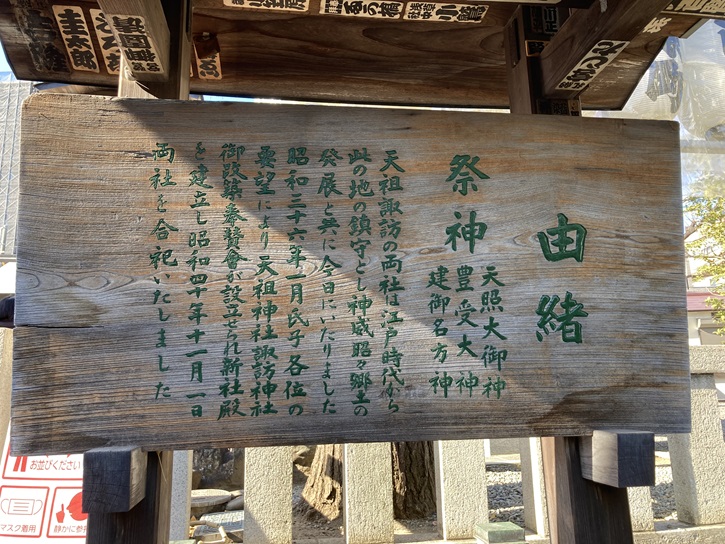 由緒
祭神
天照大御神
豊受大神
建御名方神
天祖諏訪の両社は江戸時代から
此の地の鎮守とし神威昭々郷土の
発展と共に今日にいたりました
昭和三十六年一月氏子各位の
要望により天祖神社諏訪神社
御改築奉賛會が設立せられ新社殿
を建立し昭和四十年十一月一日
両社を合祀いたしました
圭太郎
お並びください
マスク着用
静かに参